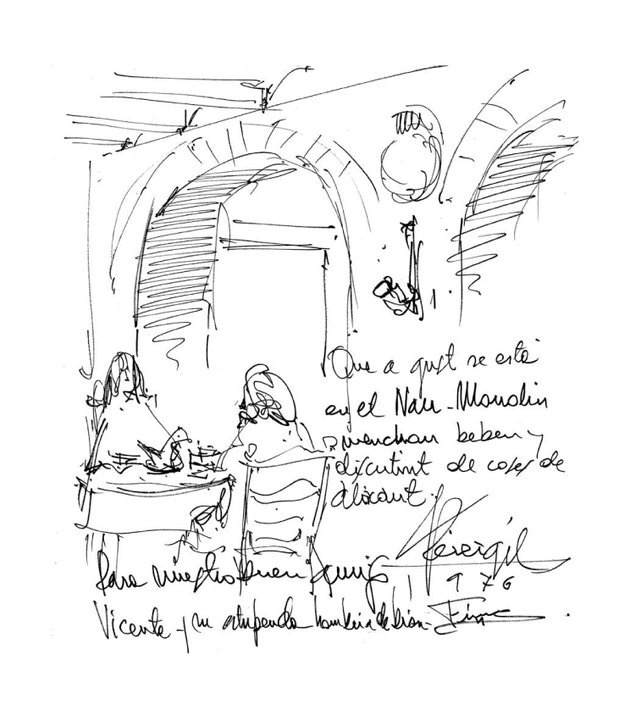 Que a gust se está
en el Nau-Manolin
menchan beben y
discutint de coses de
Alacant.
Pérezgil
1976
Para nuestro buen amigo
Vicente y su estupenda